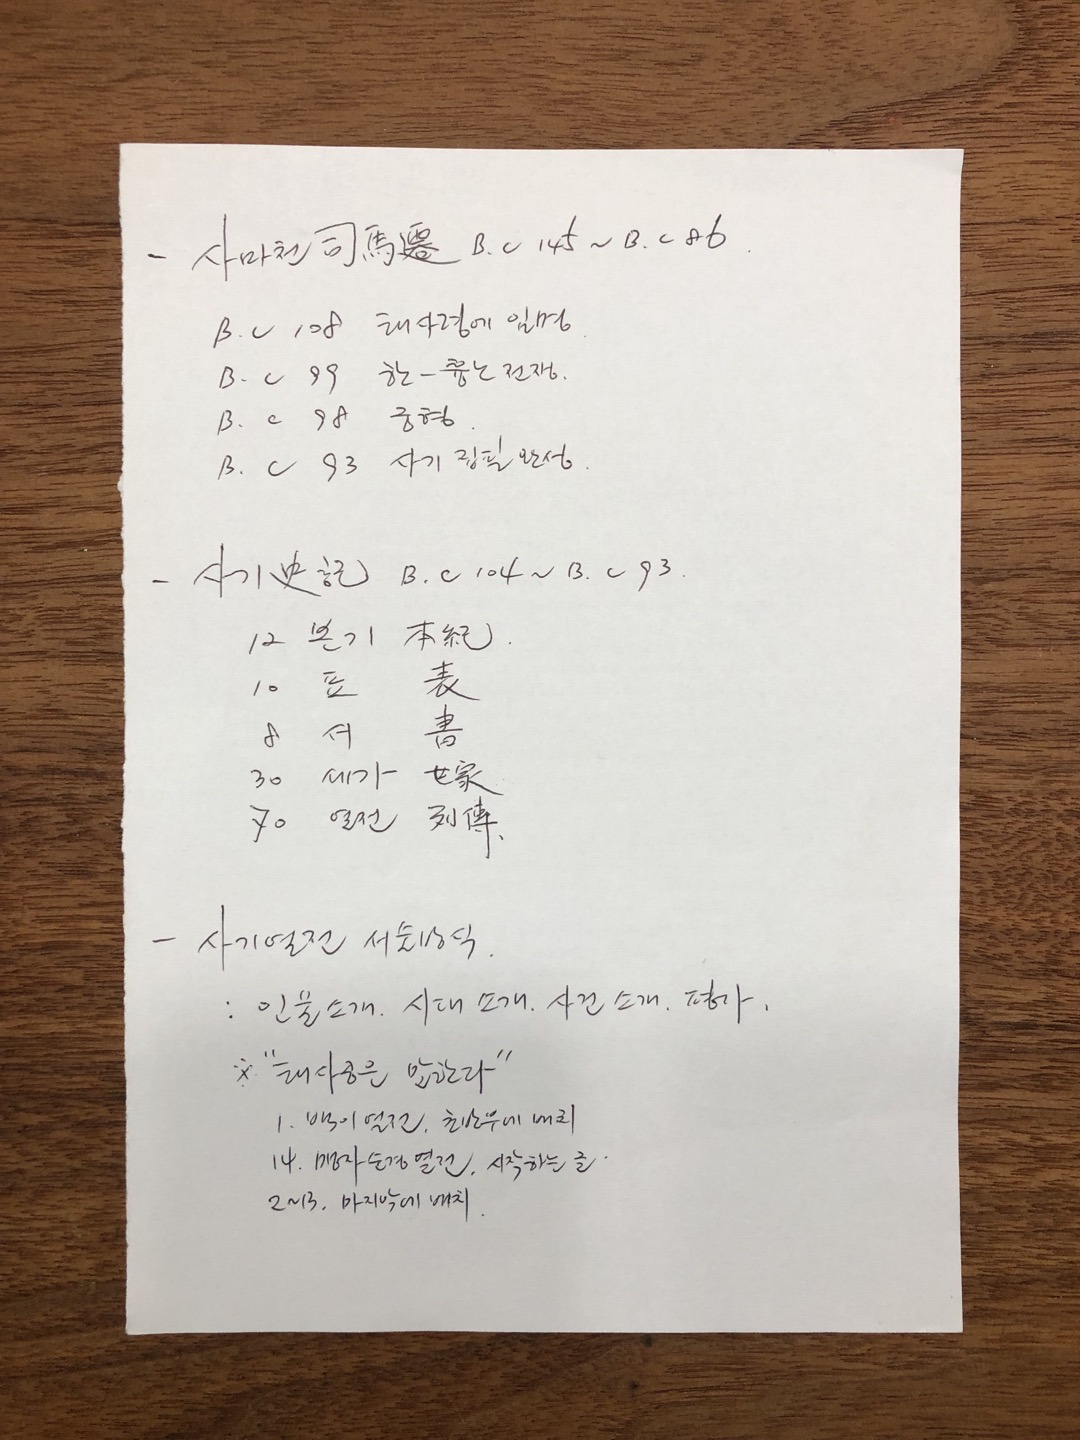 - 사마천 司馬遷 B.C 145 ~ B.C 86.
B.C 108 태사령에 임명.
B.C 99 한-흉노전쟁.
B.C 98 궁형.
B.C 93 사기 집필 완성.
- 사기 史記 B.C 104 ~ B.C 93.
12 본기 本紀.
10 표 表
8 서 書
30 세가 世家
70 열전 列傳.
- 사기열전 서술방식.
: 인물소개. 시대소개. 사건소개. 평가.
※ "태사공은 말한다"
1. 백이열전, 초반부에 배치
14. 맹자순경열전, 시작하는 글.
2~13. 마지막에 배치.